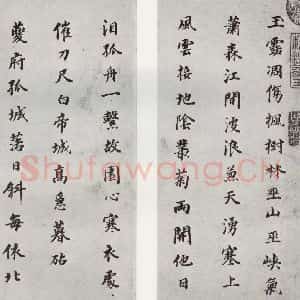 玉露凋傷楓樹林巫山巫峽氣
蕭森江間波浪兼天湧塞上
風雲接地陰叢菊兩開他日
泪孤舟一繫故園心寒衣處
催刀尺白帝城高急暮砧
夔府孤城落日斜每依北
Shufawang.CN